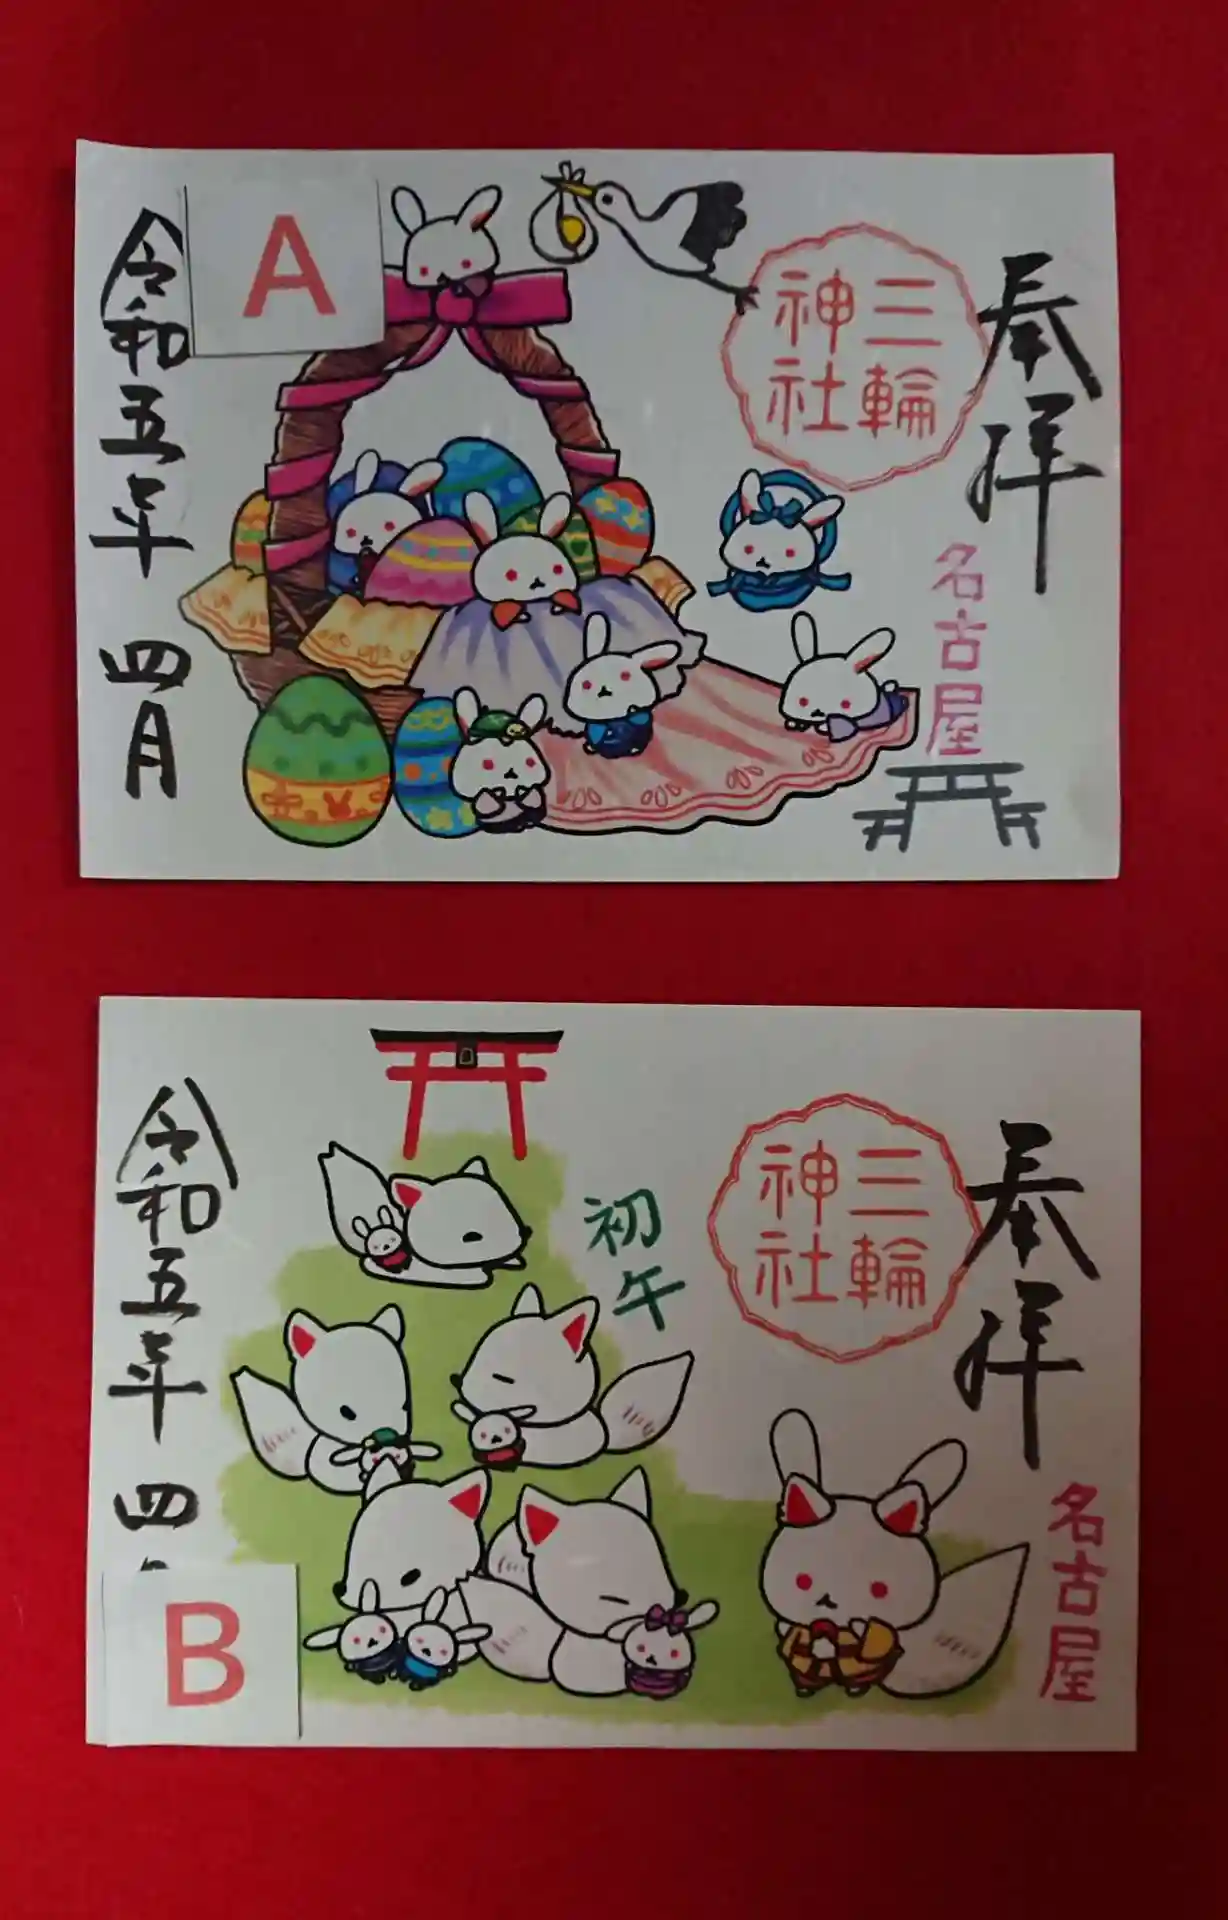 奉拝
三輪
神社
名古屋
A
令和五年 四月
奉拝
三輪
神社
名古屋
初午
令和五年 四
B